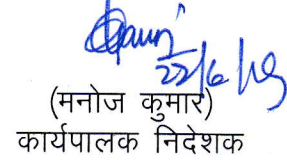 22/6/19
(मनोज कुमार)
कार्यपालक निदेशक